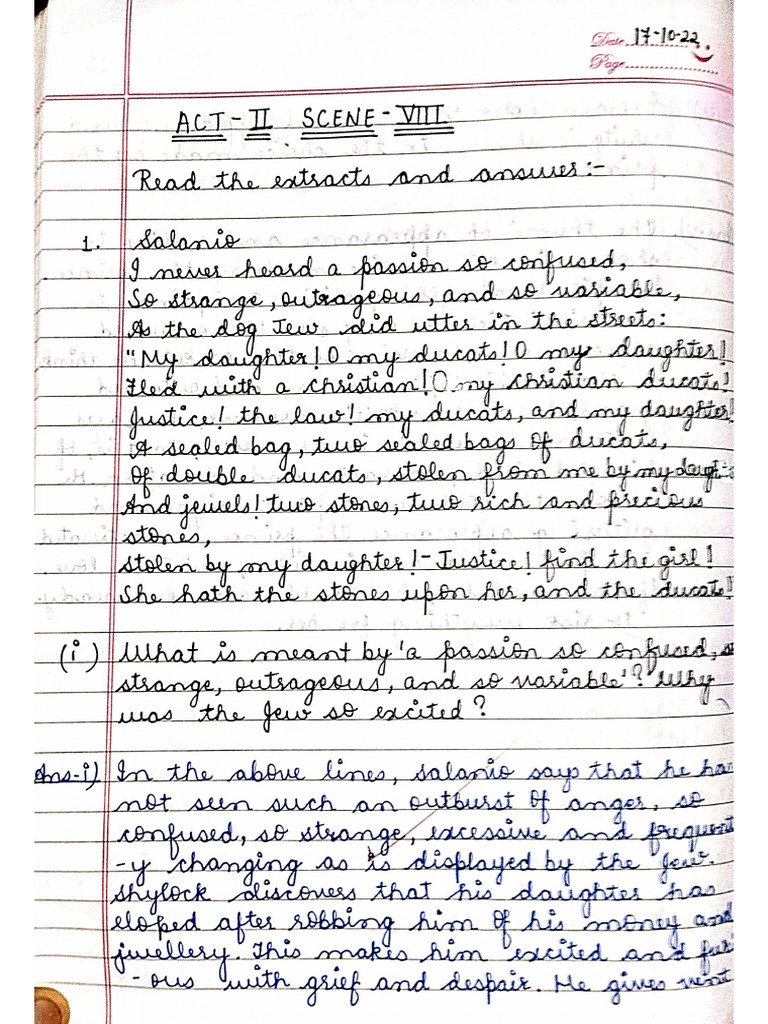 Date 17-10-22
Page
ACT-II SCENE-VIII
Read the extracts and answer:-
1. Salanio
I never heard a passion so confused,
So strange, outrageous, and so variable,
As the dog Jew did utter in the streets:
"My daughter! O my ducats! O my daughter!
Fled with a christian! O my christian ducats!
Justice! the law! my ducats, and my daughter!
A sealed bag, two sealed bags of ducats,
Of double ducats, stolen from me by my daught
And jewels! two stones, two rich and precious
stones,
stolen by my daughter!- Justice! find the girl!
She hath the stones upon her, and the ducats!
(i) What is meant by 'a passion so confused, s
strange, outrageous, and so variable'? Why
was the Jew so excited?
Ans-i) In the above lines, salanio says that he ha
not seen such an outburst of anger, so
confused, so strange, excessive and frequent
-y changing as is displayed by the Jew.
Shylock discovers that his daughter has
eloped after robbing him of his money and
jwellery. This makes him excited and fur
-ous with grief and despair. He gives vent